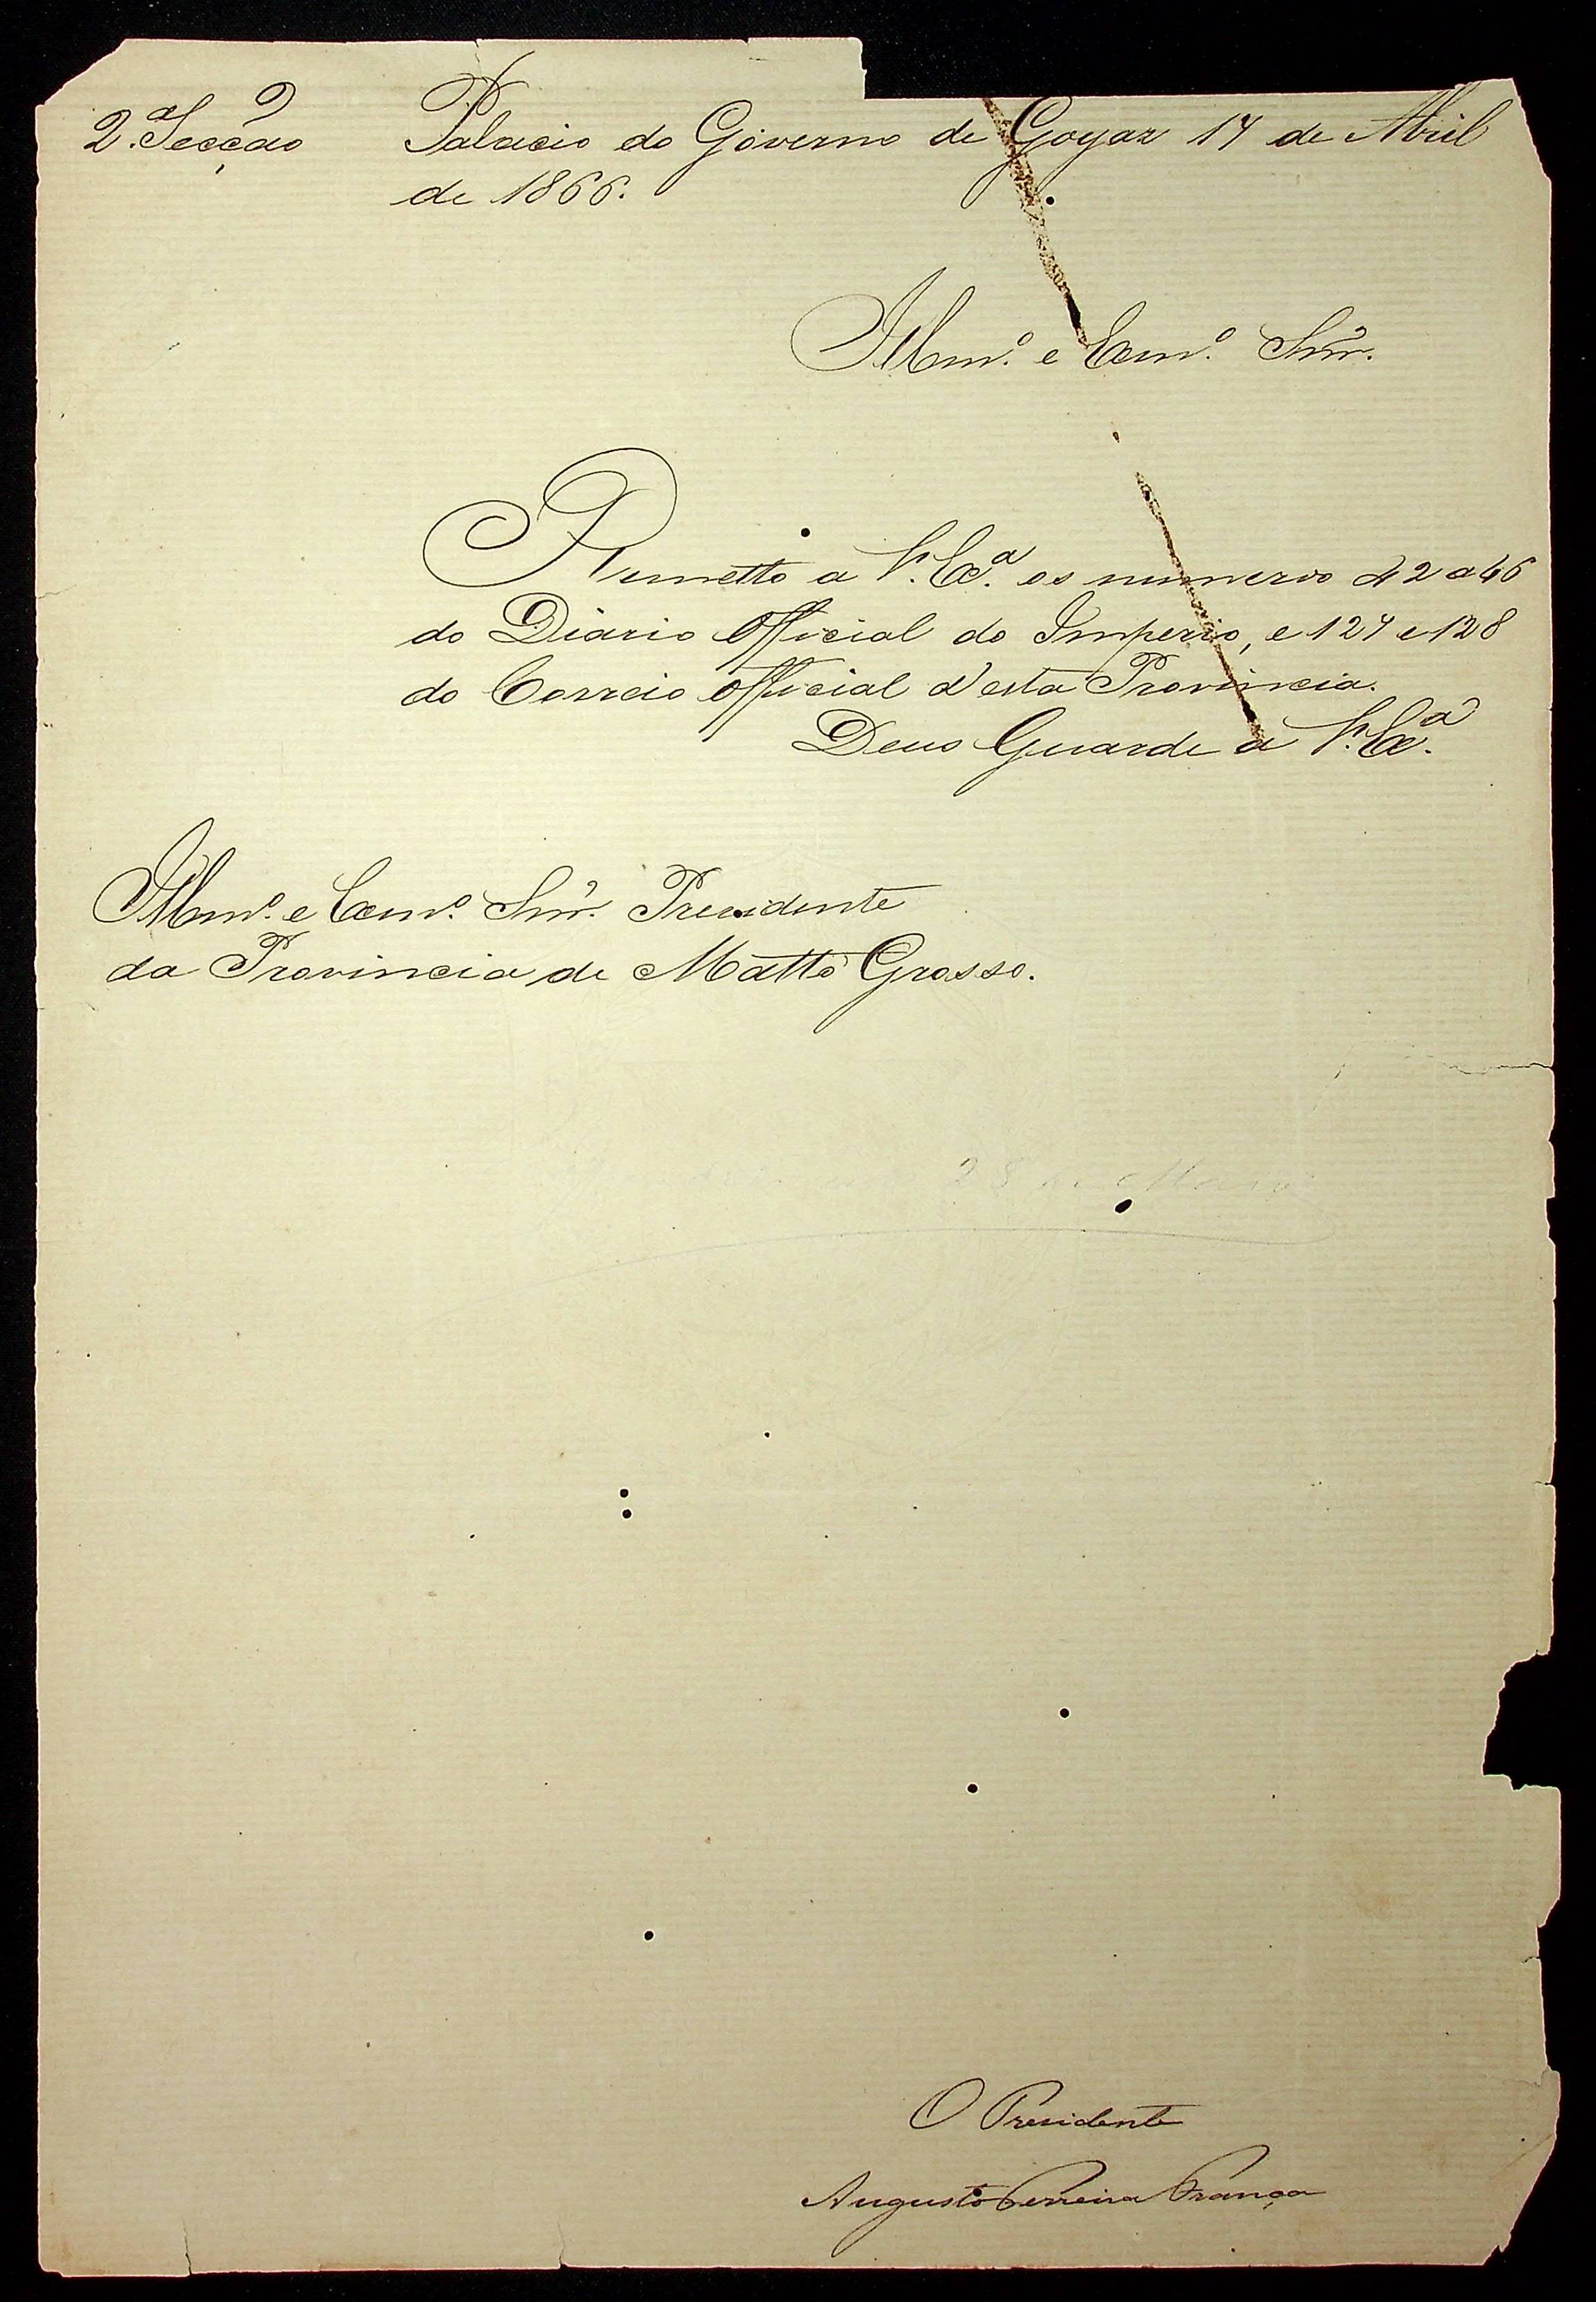 2.ª Secção Palacio do Governo de Goyaz 17 de Abril
de 1866.
Illm.º e Exm.º Snr.
Remetto a V. Ex.ª os numeros 42 a 46
do Diario Official do Imperio, e 127 e 128
do Correio Official d'esta Provincia.
Deus Guarde a V. Ex.ª
Illm.º e Exm.º Snr. Presidente
da Provincia de Matto Grosso.
28 de Maio
O Presidente
Augusto Ferreira França